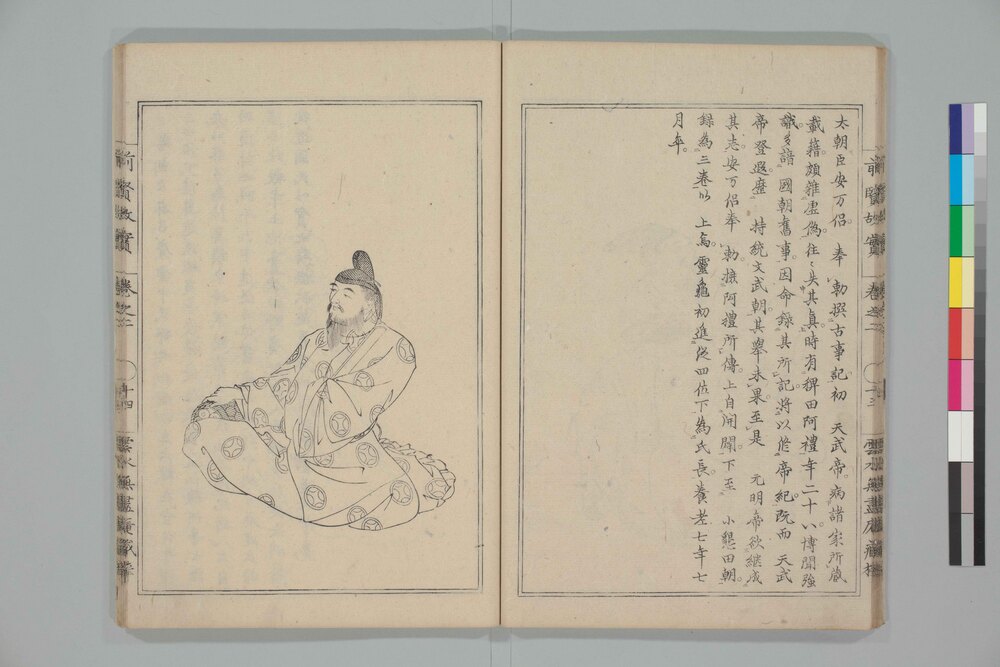 太朝臣安万侶 奉 勅撰古事記初 天武帝病諸家所蔵
載籍頗雑虚偽往〻失其真時有稗田阿禮年二十八博聞強
識多諳國朝舊事因命録其所記将以修帝紀既而 天武
帝登遐歴 持統文武朝其擧未果至是 元明帝欲継成
其志安万侶奉 勅撿阿禮所傳上自開闢下至 小懇田朝
録為三巻以 上焉靈龜初進従四位下為氏長養老七年七
月卒
前賢故實 巻之二 十三
前賢故實 巻之二 十四